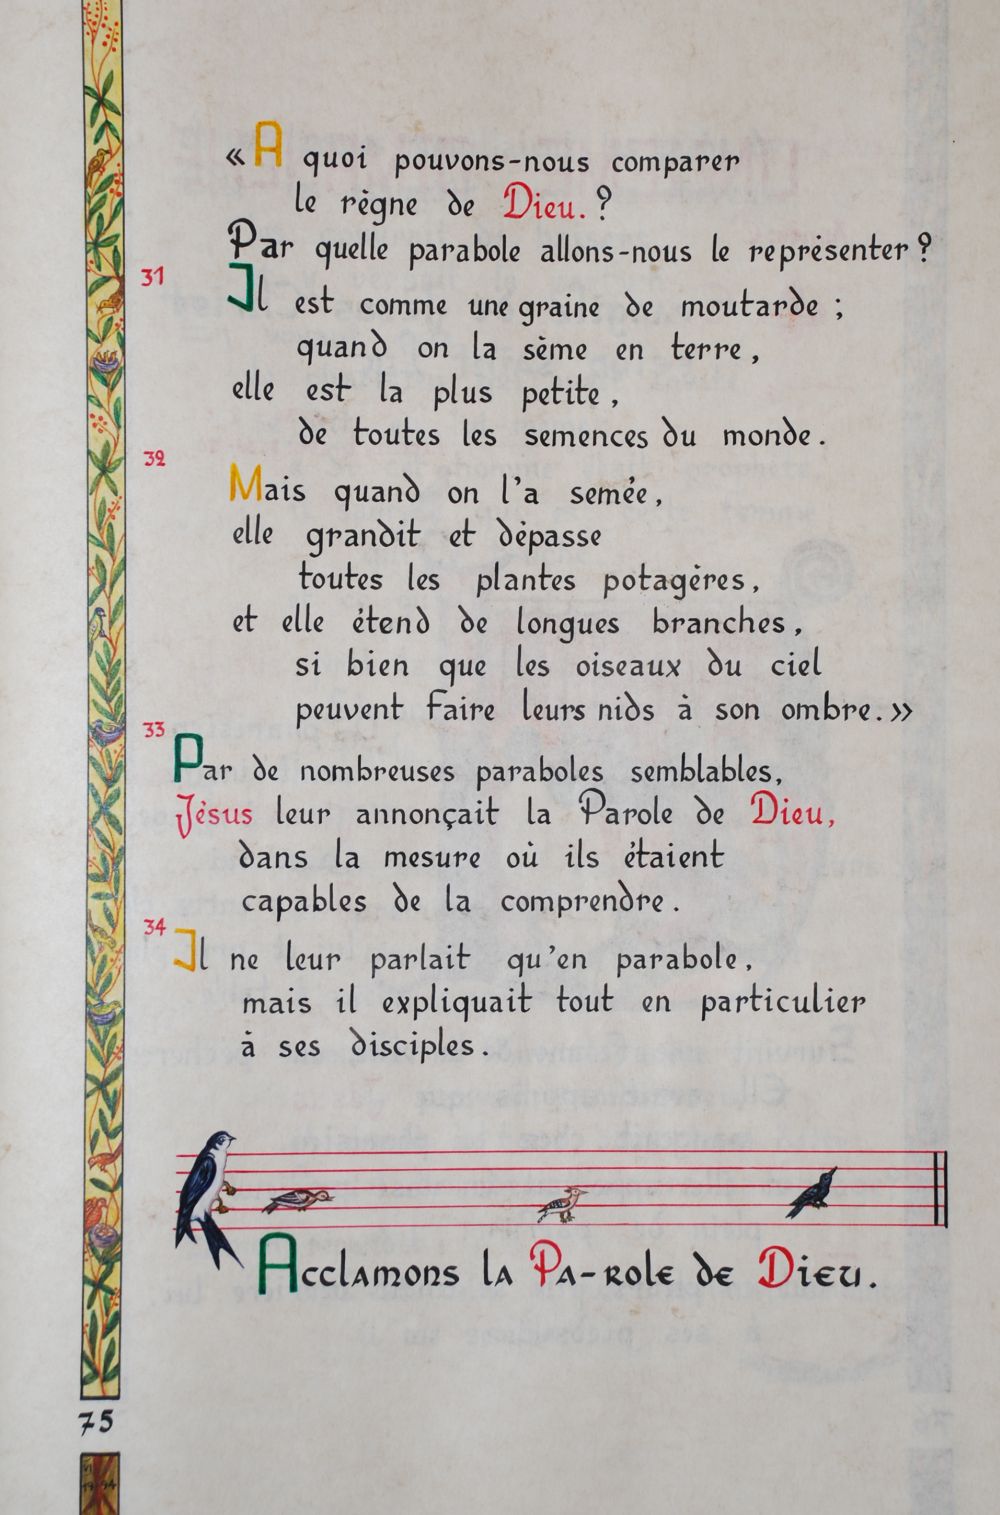 « A quoi pouvons-nous comparer
le règne de Dieu. ?
Par quelle parabole allons-nous le représenter ?
31
Il est comme une graine de moutarde ;
quand on la sème en terre,
elle est la plus petite,
de toutes les semences du monde.
32
Mais quand on l'a semée,
elle grandit et dépasse
toutes les plantes potagères,
et elle étend de longues branches,
si bien que les oiseaux du ciel
peuvent faire leurs nids à son ombre. »
33
Par de nombreuses paraboles semblables,
Jésus leur annonçait la Parole de Dieu,
dans la mesure où ils étaient
capables de la comprendre.
34
Il ne leur parlait qu'en parabole,
mais il expliquait tout en particulier
à ses disciples.
Acclamons la Pa-role de Dieu.
75